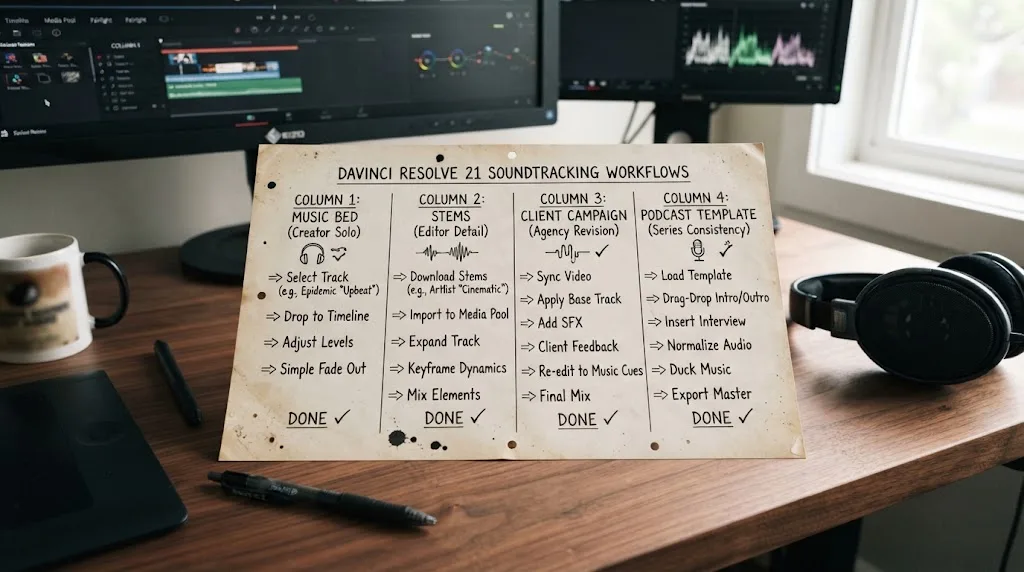 Timeline Media Pool Fairlight Fairlight
COLUMN 1
EIZO
DAVINCI RESOLVE 21 SOUNDTRACKING WORKFLOWS
COLUMN 1:
MUSIC BED
(Creator Solo)
⇒ Select Track
(e.g., Epidemic "Upbeat")
⇒ Drop to Timeline
⇒ Adjust Levels
⇒ Simple Fade Out
DONE ✓
COLUMN 2:
STEMS
(Editor Detail)
⇒ Download Stems
(e.g., Artlist "Cinematic")
⇒ Import to Media Pool
⇒ Expand Track
⇒ Keyframe Dynamics
⇒ Mix Elements
DONE ✓
COLUMN 3:
CLIENT CAMPAIGN
(Agency Revision)
⇒ Sync Video
⇒ Apply Base Track
⇒ Add SFX
⇒ Client Feedback
⇒ Re-edit to Music Cues
⇒ Final Mix
DONE ✓
COLUMN 4:
PODCAST TEMPLATE
(Series Consistency)
⇒ Load Template
⇒ Drag-Drop Intro/Outro
⇒ Insert Interview
⇒ Normalize Audio
⇒ Duck Music
⇒ Export Master
DONE ✓